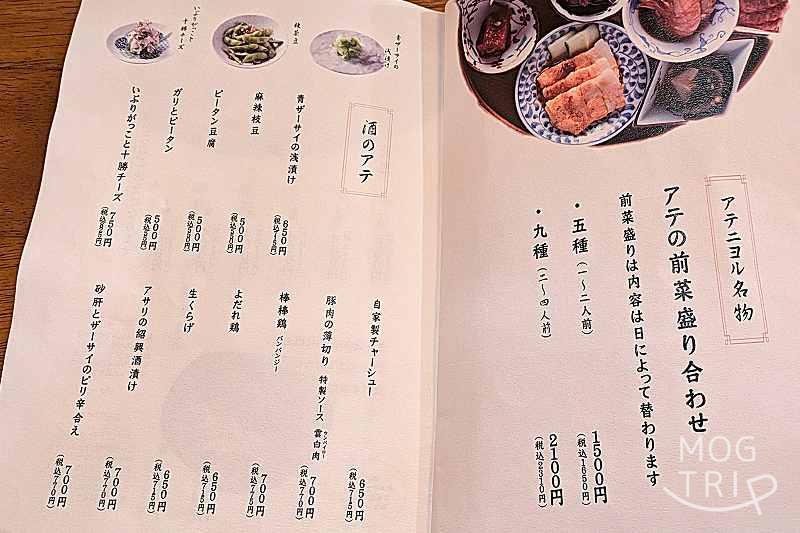 アテニヨル名物
アテの前菜盛り合わせ
前菜盛りは内容は日によって替わります
・五種（一～二人前）
1500円
（税込1650円）
・九種（二～四人前）
2100円
（税込2310円）
青ザーサイの
浅漬け
枝豆
いぶりがっこと
十勝チーズ
酒のアテ
青ザーサイの浅漬け
650円
（税込715円）
麻辣枝豆
500円
（税込550円）
ピータン豆腐
500円
（税込550円）
ガリとピータン
500円
（税込550円）
いぶりがっこと十勝チーズ
750円
（税込825円）
自家製チャーシュー
650円
（税込715円）
豚肉の薄切り 特製ソース 雲白肉
ウンパイロー
700円
（税込770円）
棒棒鶏 バンバンジー
700円
（税込770円）
よだれ鶏
650円
（税込715円）
生くらげ
650円
（税込715円）
アサリの紹興酒漬け
700円
（税込770円）
砂肝とザーサイのピリ辛合え
700円
（税込770円）
MOG
TRIP